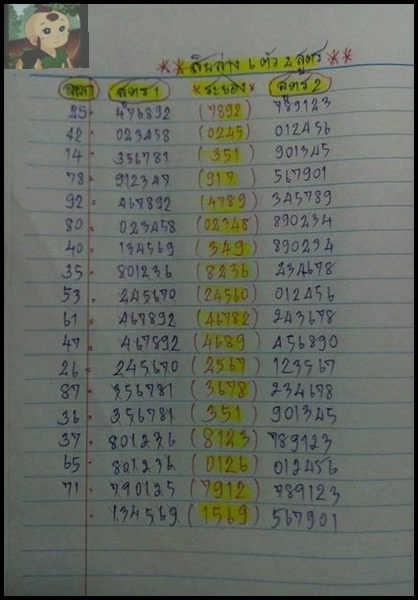 ** สิบล่าง 6 ตัว 2 สูตร **
งวด สูตร 1 *ระบอง* สูตร 2
25 476892 (7892) 789123
42 023458 (0245) 012456
14 356781 (351) 901345
78 912347 (917) 567901
92 467892 (4789) 345789
80 023458 (02348) 890234
40 134569 (349) 890234
35 801236 (8236) 234678
53 245670 (24560) 012456
61 467892 (46782) 243678
47 467892 (4689) 456890
26 245670 (2567) 123567
87 356781 (3678) 234678
36 356781 (351) 901345
37 801236 (8123) 789123
65 801236 (0126) 012456
71 790125 (7912) 789123
134569 (1569) 567901